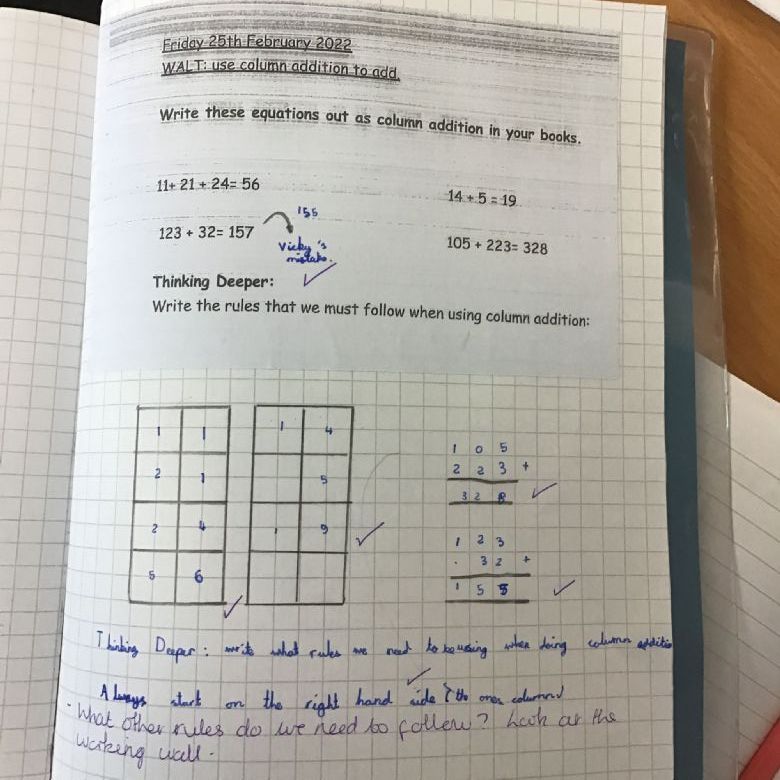 Friday 25th February 2022
WALT: use column addition to add.
Write these equations out as column addition in your books.
11+ 21 + 24= 56
14 + 5 = 19
155
123 + 32= 157
Vicky's
mistake.
105 + 223= 328
Thinking Deeper:
Write the rules that we must follow when using column addition:
1 1
2 1
2 4
5 6
1 4
5
1 9
1 0 5
2 2 3 +
3 2 8
1 2 3
. 3 2 +
1 5 5
Thinking Deeper: write what rules we need to be using when doing column additio
Always start on the right hand side (the ones column)
- What other rules do we need to follow? Look at the
working wall.